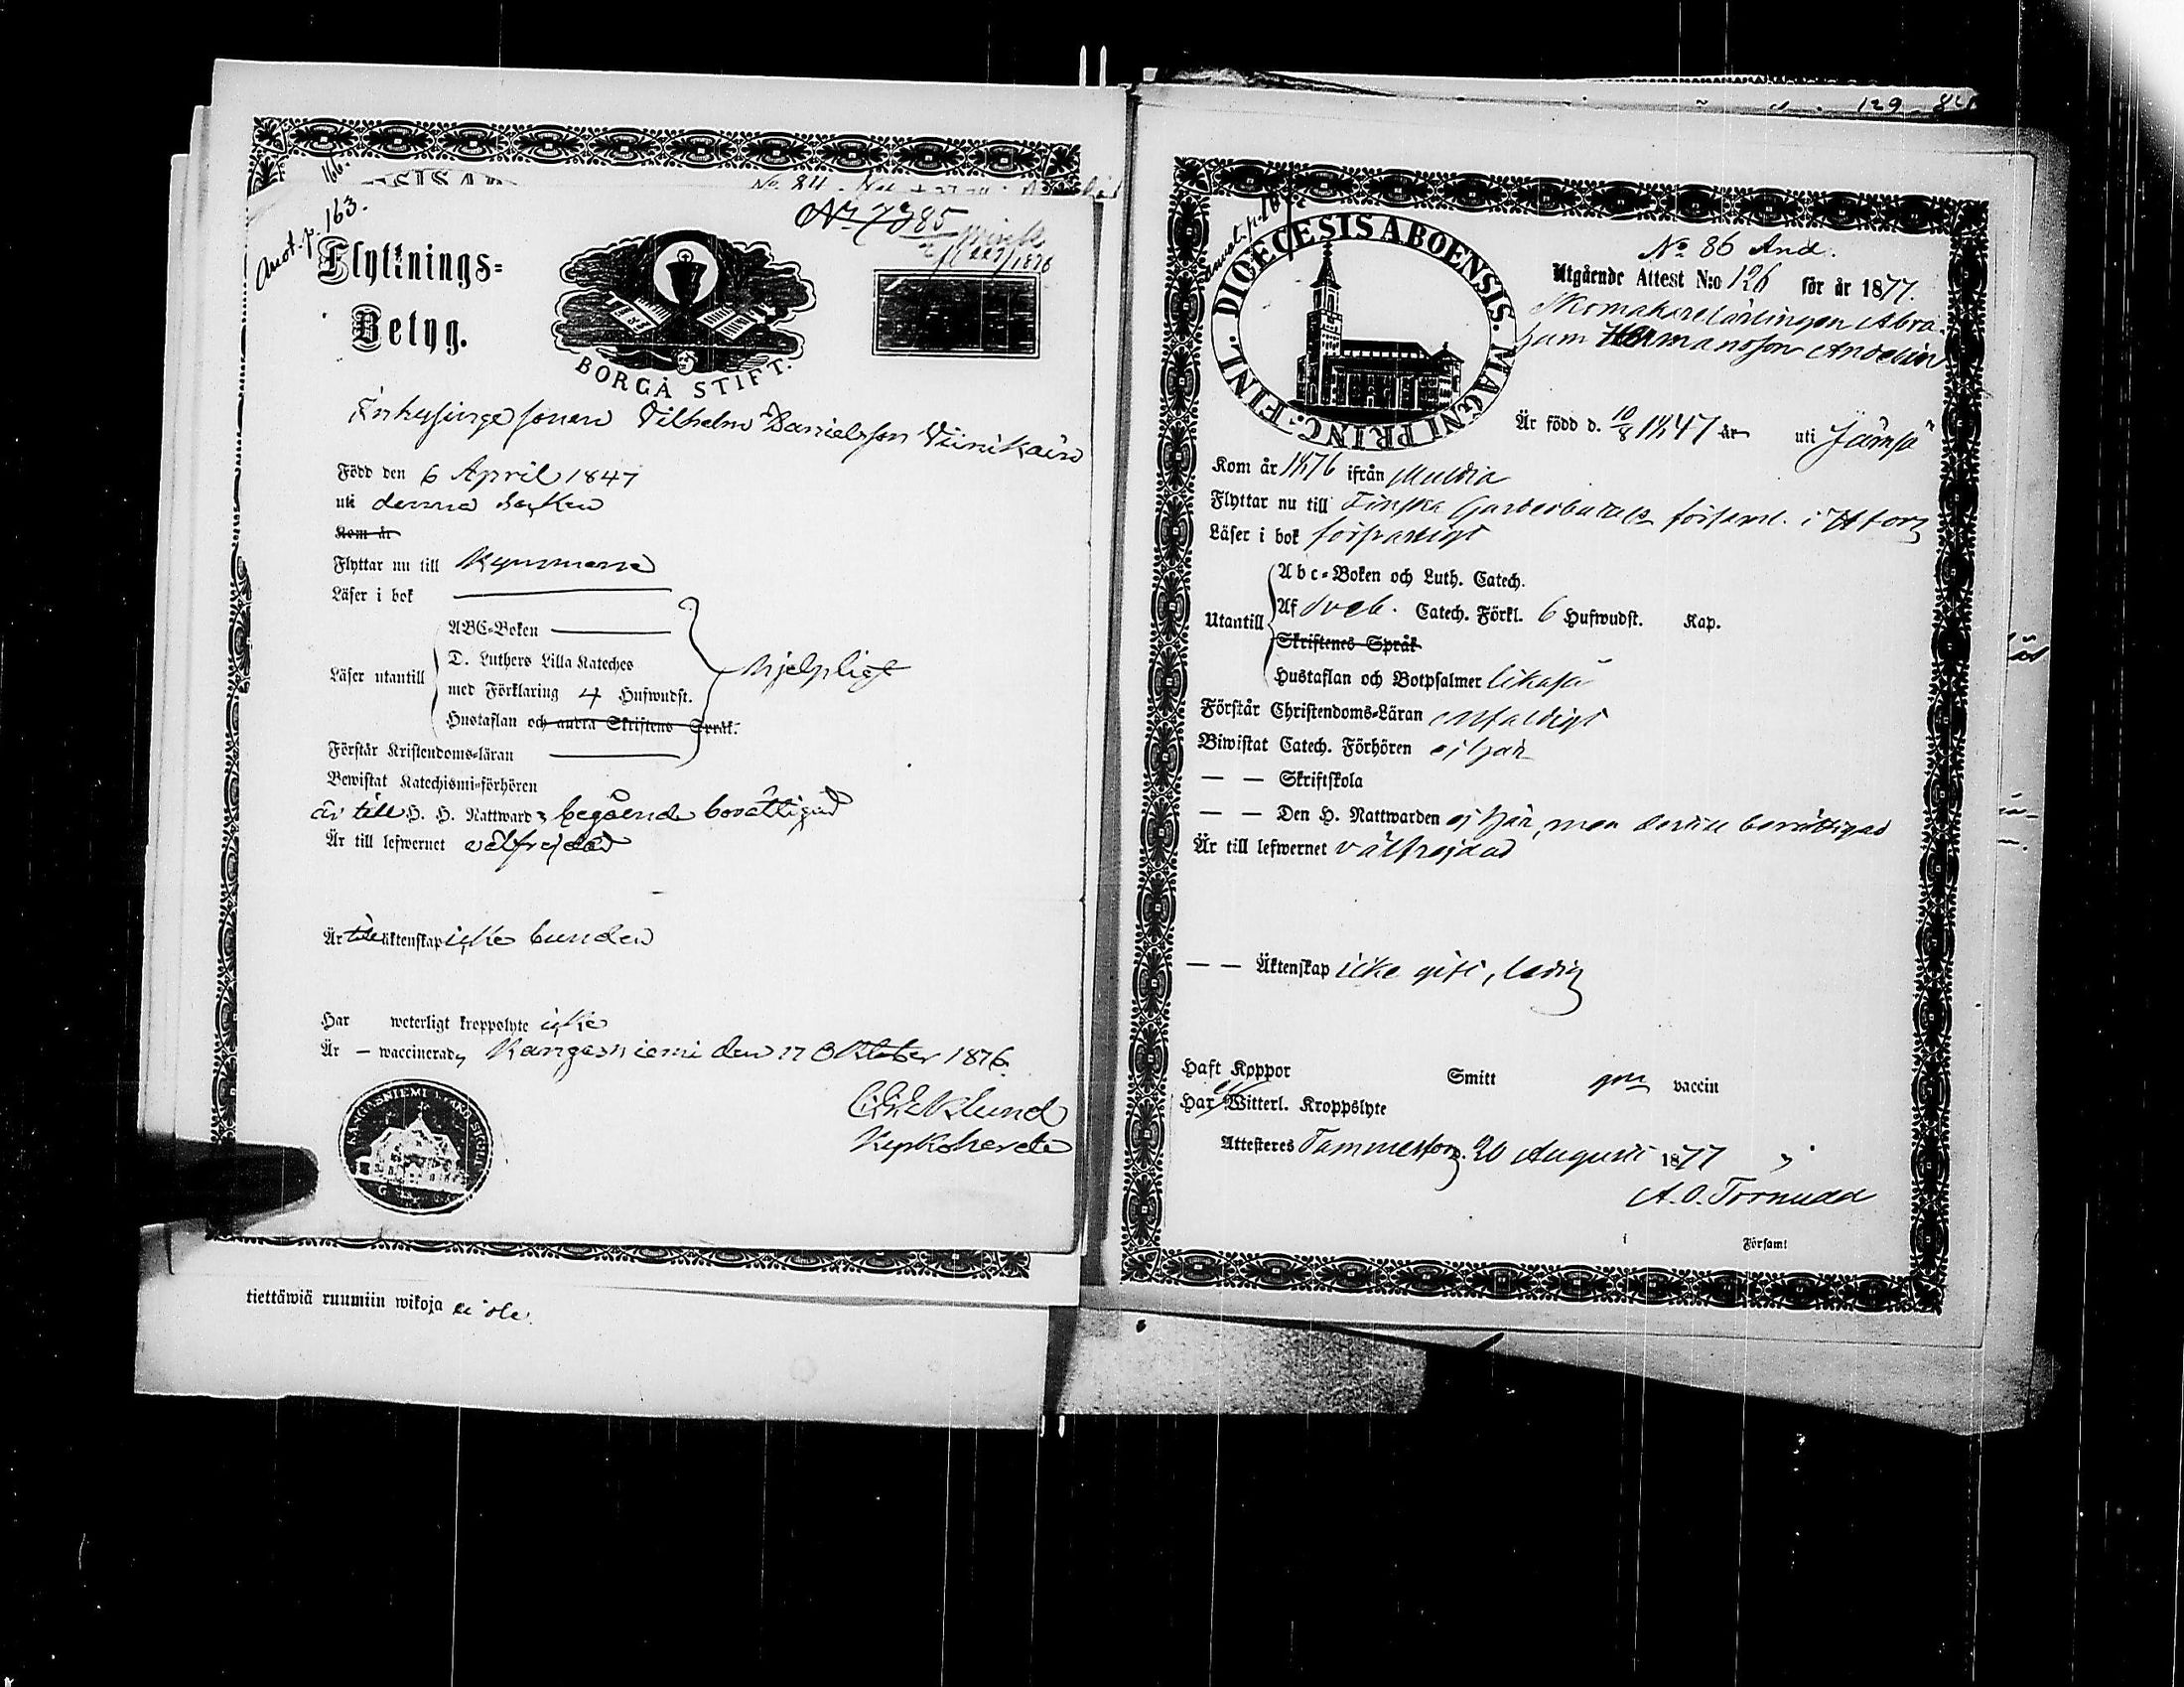 166.
anot. p. 163.
No. 84
85
Flyttnings=
Betyg.
BORGÅ STIFT.
Inhysinge sonen Vilhelm Danielsson Viinikain
Född den 6 April 1847
uti denna socken
Kom år
Flyttar nu till Kymmene
Läser i bok
ABC=Boken
D. Luthers Lilla Kateches
Läser utantill
med Förklaring 4 Hufwudst.
hjelpligt
Hustaflan och andra Skriftens Språk.
Förstår Kristendoms=läran
Bewistat Katechismi=förhören
är till H. H. Nattwards begående berättigad
Är till lefwernet välfrejdad
Är till äktenskap icke bunden
Har weterligt kroppslyte icke
Är – waccinerad, Kangasniemi den 17 Oktober 1876.
Eklund
Kyrkoherde
KANGASNIEMI
tiettäwiä ruumiin wikoja ei ole.
129 84
anot. p.
DIOECESIS ABOENSIS. MAGNI PRINC. FINL.
No 86 And.
Utgående Attest N:o 126 för år 1877.
Skomakarelärlingen Abra-
ham Hermansson Andelin
Är född d. 10/8 1847 år uti Jämsä
Kom år 1876 ifrån Multia
Flyttar nu till Finska Gardesbatal:s församl. i H:fors
Läser i bok försvarligt
Abc=Boken och Luth. Catech.
Utantill
Af Sveb. Catech. Förkl. 6 Hufwudst. Kap.
Skriftenes Språk
Hustaflan och Botpsalmer likaså
Förstår Christendoms=Läran enfaldigt
Biwistat Catech. Förhören ej här
— — Skriftskola
— — Den H. Nattwarden ej här, men dertill berättigad
Är till lefwernet välfrejdad
— — Äktenskap icke gift, ledig
Haft Koppor Smitt gm vaccin
Har ej Witterl. Kroppslyte
Attesteres Tammerfors. 20 Augusti 1877
A. O. Törnudd
i Församl